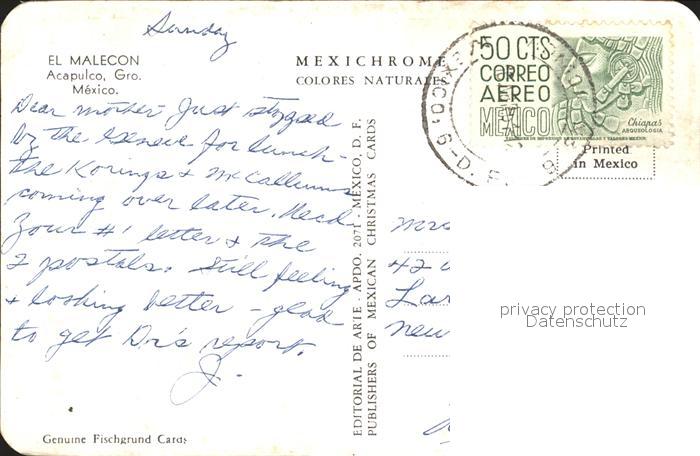 Sunday
EL MALECON
Acapulco, Gro.
México.
MEXICHROME
COLORES NATURALES
Dear mother Just stopped
by the Geneve for lunch -
the Korings & McCallums
coming over later. Read
your #1 letter & the
2 postals. Still feeling
& looking better - glad
to get Dr's report.
J.
Genuine Fischgrund Cards
EDITORIAL DE ARTE - APDO. 2071 - MEXICO, D. F.
PUBLISHERS OF MEXICAN CHRISTMAS CARDS
50 CTS
CORREO
AEREO
MEXICO
Chiapas
ARQUEOLOGIA
Printed
in Mexico
Mrs
42
Lar
New
privacy protection
Datenschutz